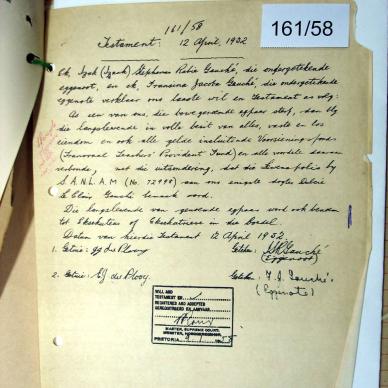 161/58
161/58
Testament: 12 April, 1952
Ek, Izak (Isack) Stephanus Rabie Gauché, die ondergetekende
eggenoot, en ek, Francina Jacoba Gauché, die ondergetekende
eggenote verklaar ons laaste wil en testament as volg:
As een van ons, die bovegenoemde egpaar sterf, dan bly
die langslewende in volle besit van alles, vaste en los
eiendom en ook alle gelde insluitende Voorsienings-fonds
(Transvaal Teachers' Provident Fund) en alle voordele daaraan
verbonde, met die uitsondering, dat die Lewenspolis by
S.A.N.L.A.M (No. 72999) aan ons engste dogter
le Clair Gauché bemaak word.
Die langslewende van genoemde egpaar word ook benoem
tot Eksekuteur of Eksekutrise in die boedel.
Datum van hierdie Testament 12 April 1952.
1. Getuie: du Plooy Geteken: Gauché
(Eggenoot)
2. Getuie: du Plooy. Geteken: F. J. Gauché
(Eggenote)
WILL AND
TESTAMENT
REGISTERED AND ACCEPTED
GEREGISTREER EN AANVAAR
MASTER, SUPREME COURT.
MEESTER, HOOGGEREGSHOF.
PRETORIA